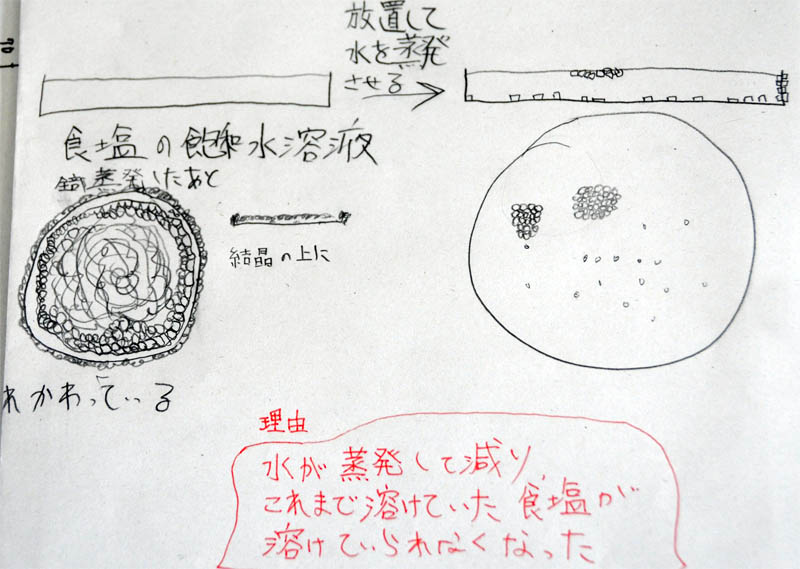 放置して
水を蒸発
させる
食塩の飽和水溶液
蒸発したあと
結晶の上に
れかわっている
理由
水が蒸発して減り、
これまで溶けていた食塩が
溶けていられなくなった